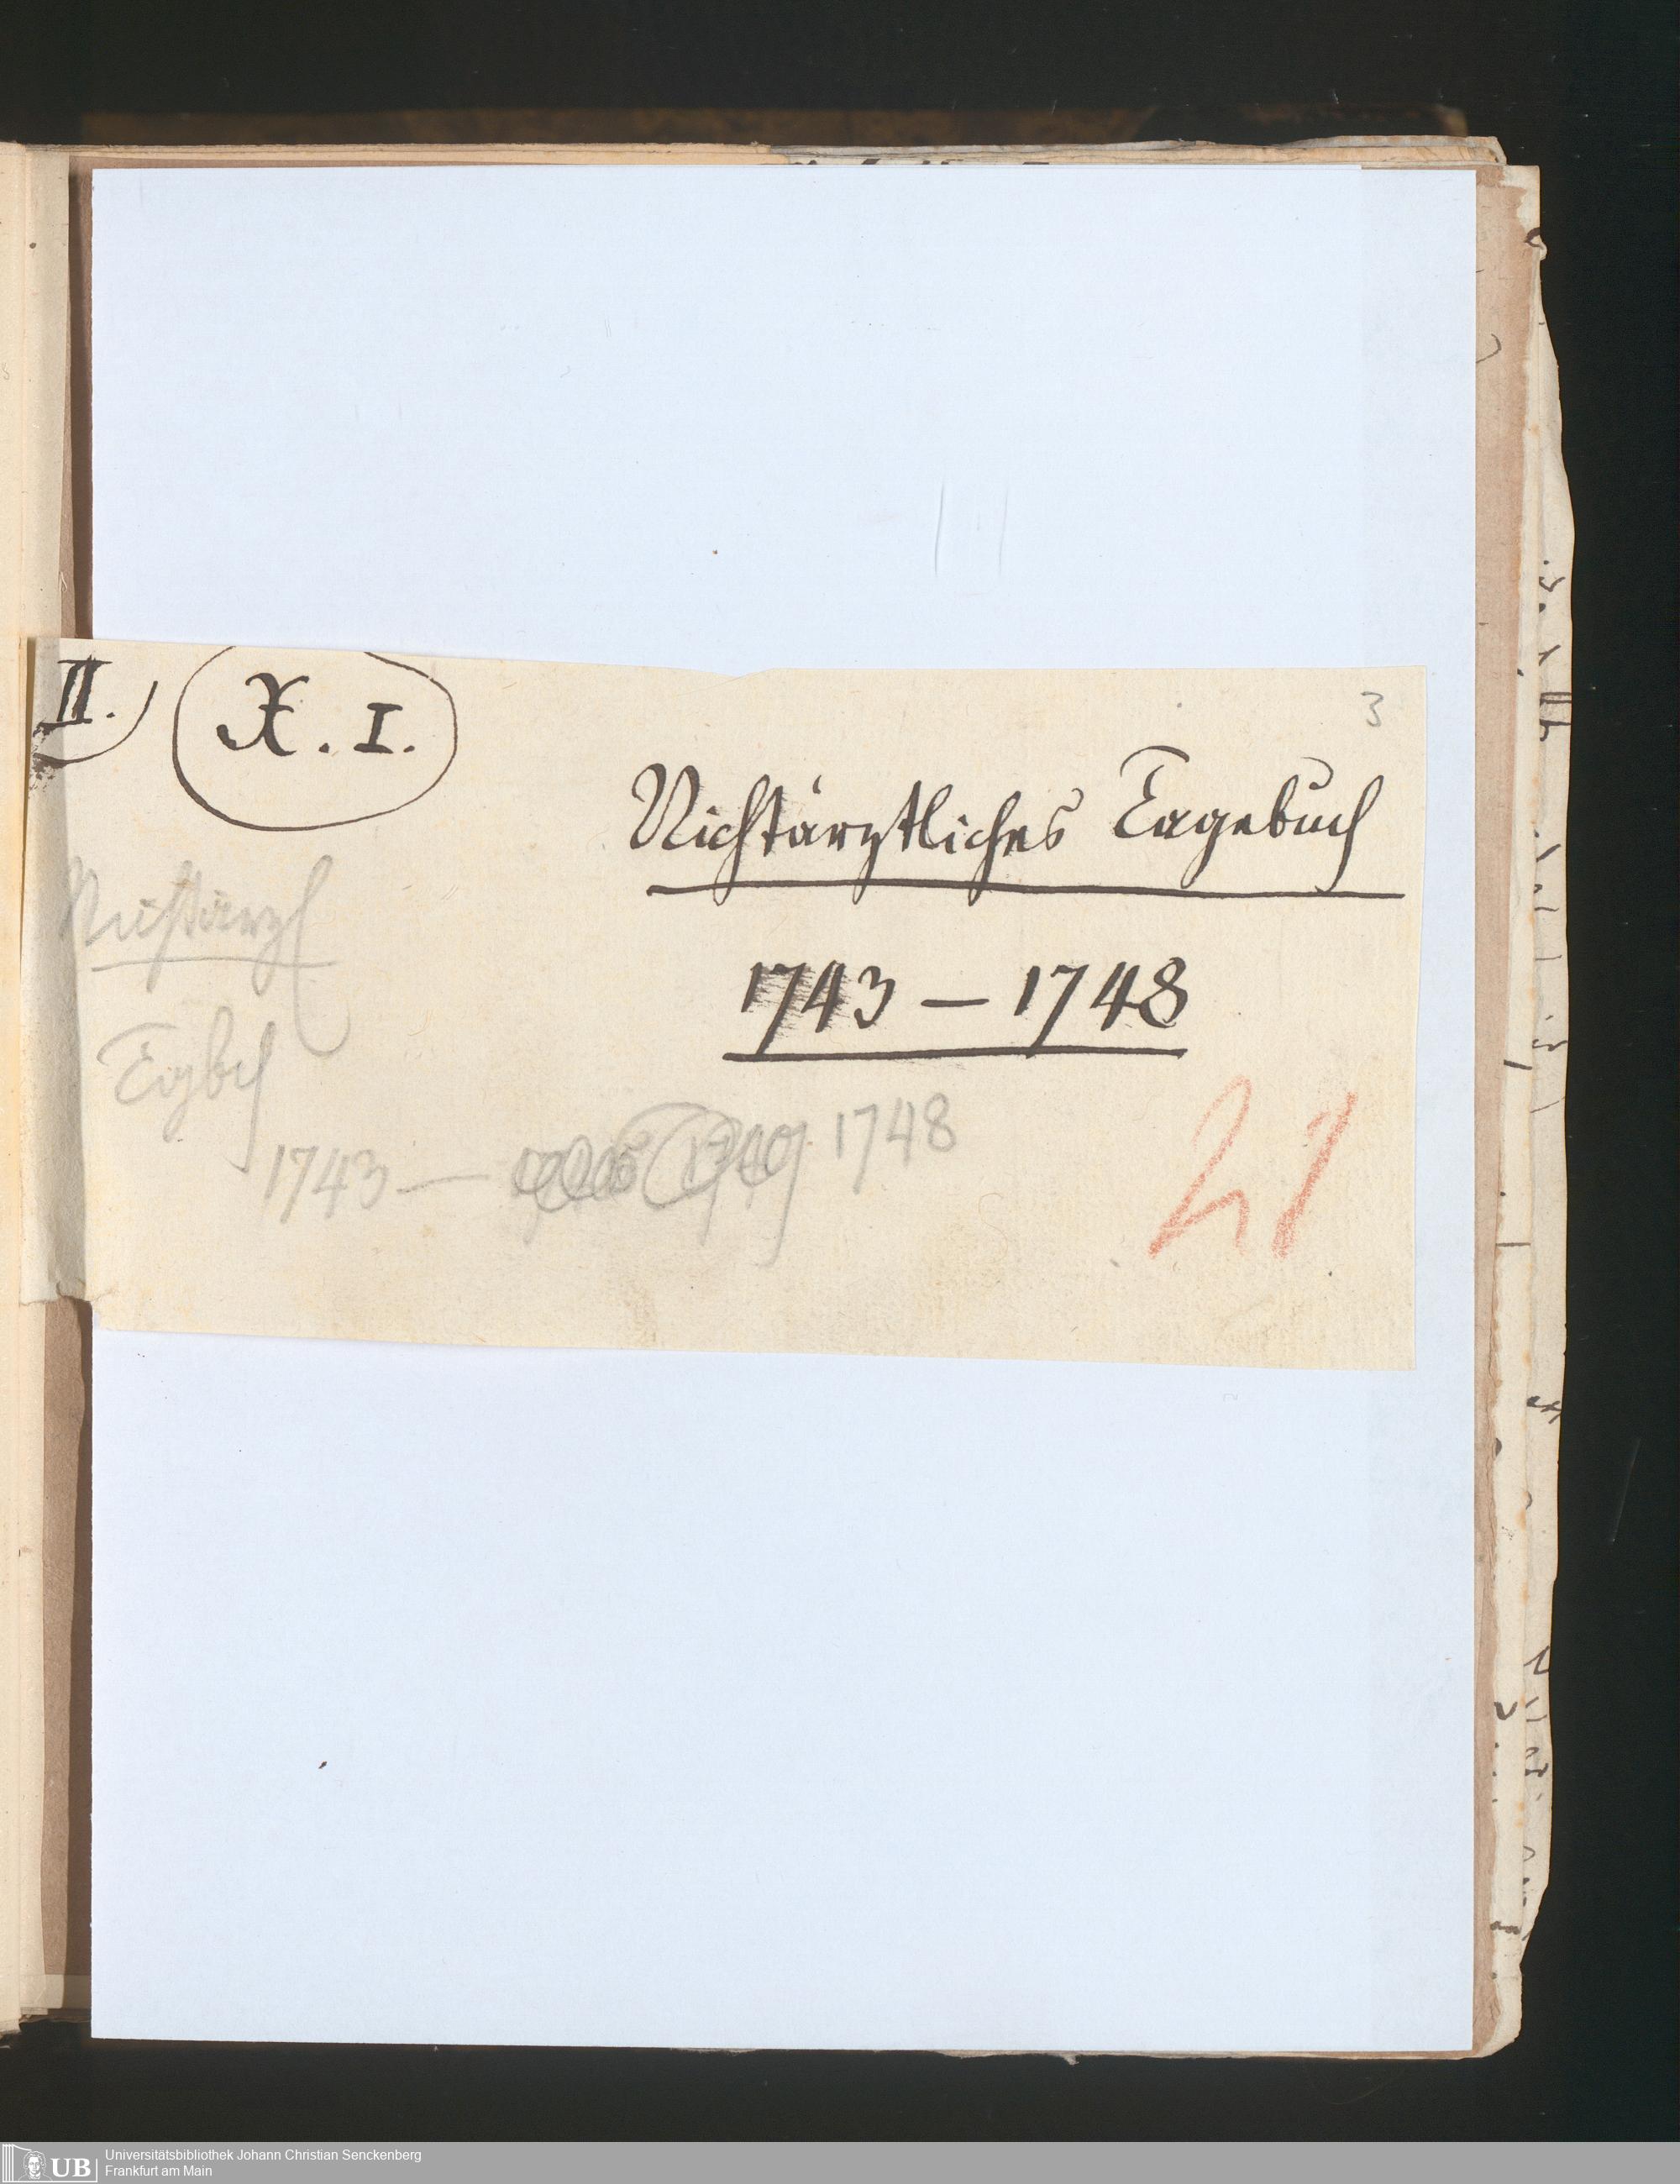 II.
X. I.
3
Nichtärztliches Tagebuch
1743 – 1748
Nichtärzl
Tagbch
1743 — 1748
21
UB
Universitätsbibliothek Johann Christian Senckenberg
Frankfurt am Main